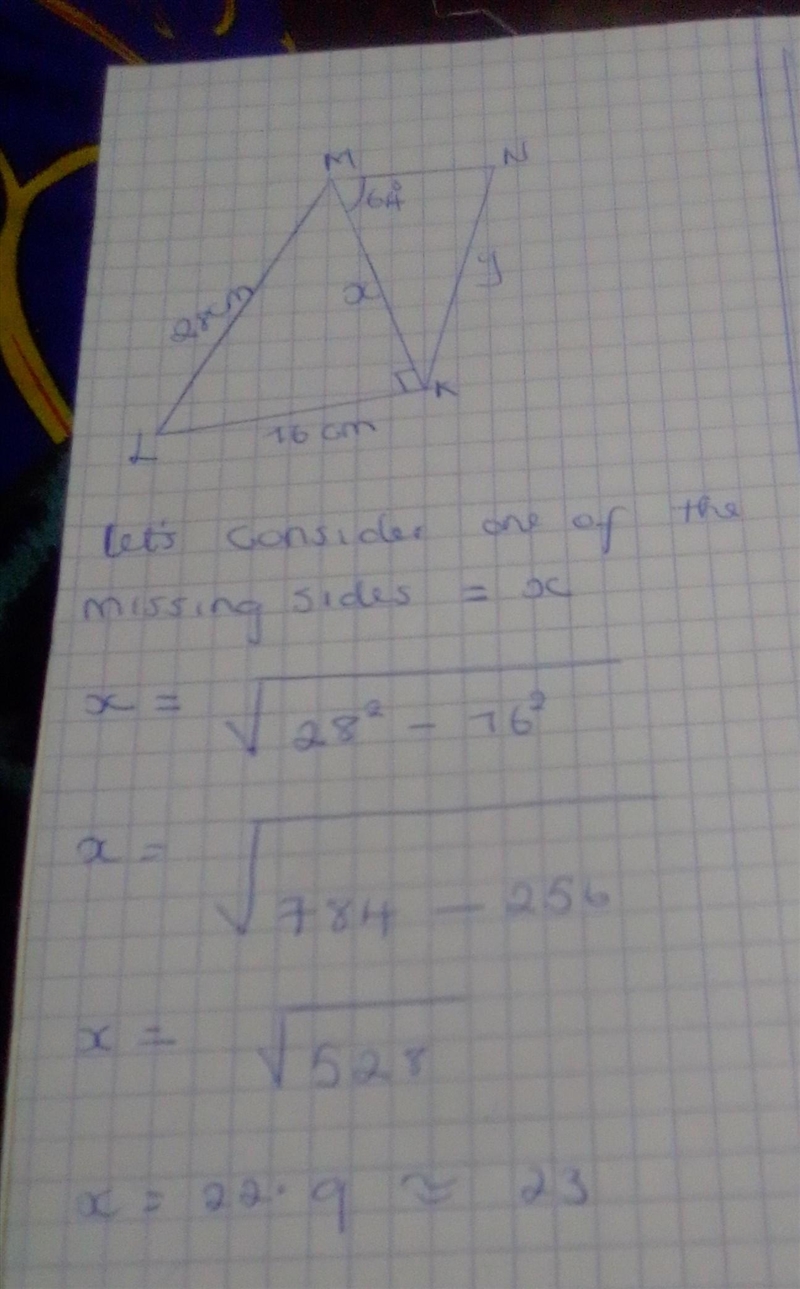 M N
64°
28cm x y
K
L 16 cm
Let's consider one of the
missing sides = x
x = √28² - 16²
x = √784 - 256
x = √528
x = 22.9 ≈ 23